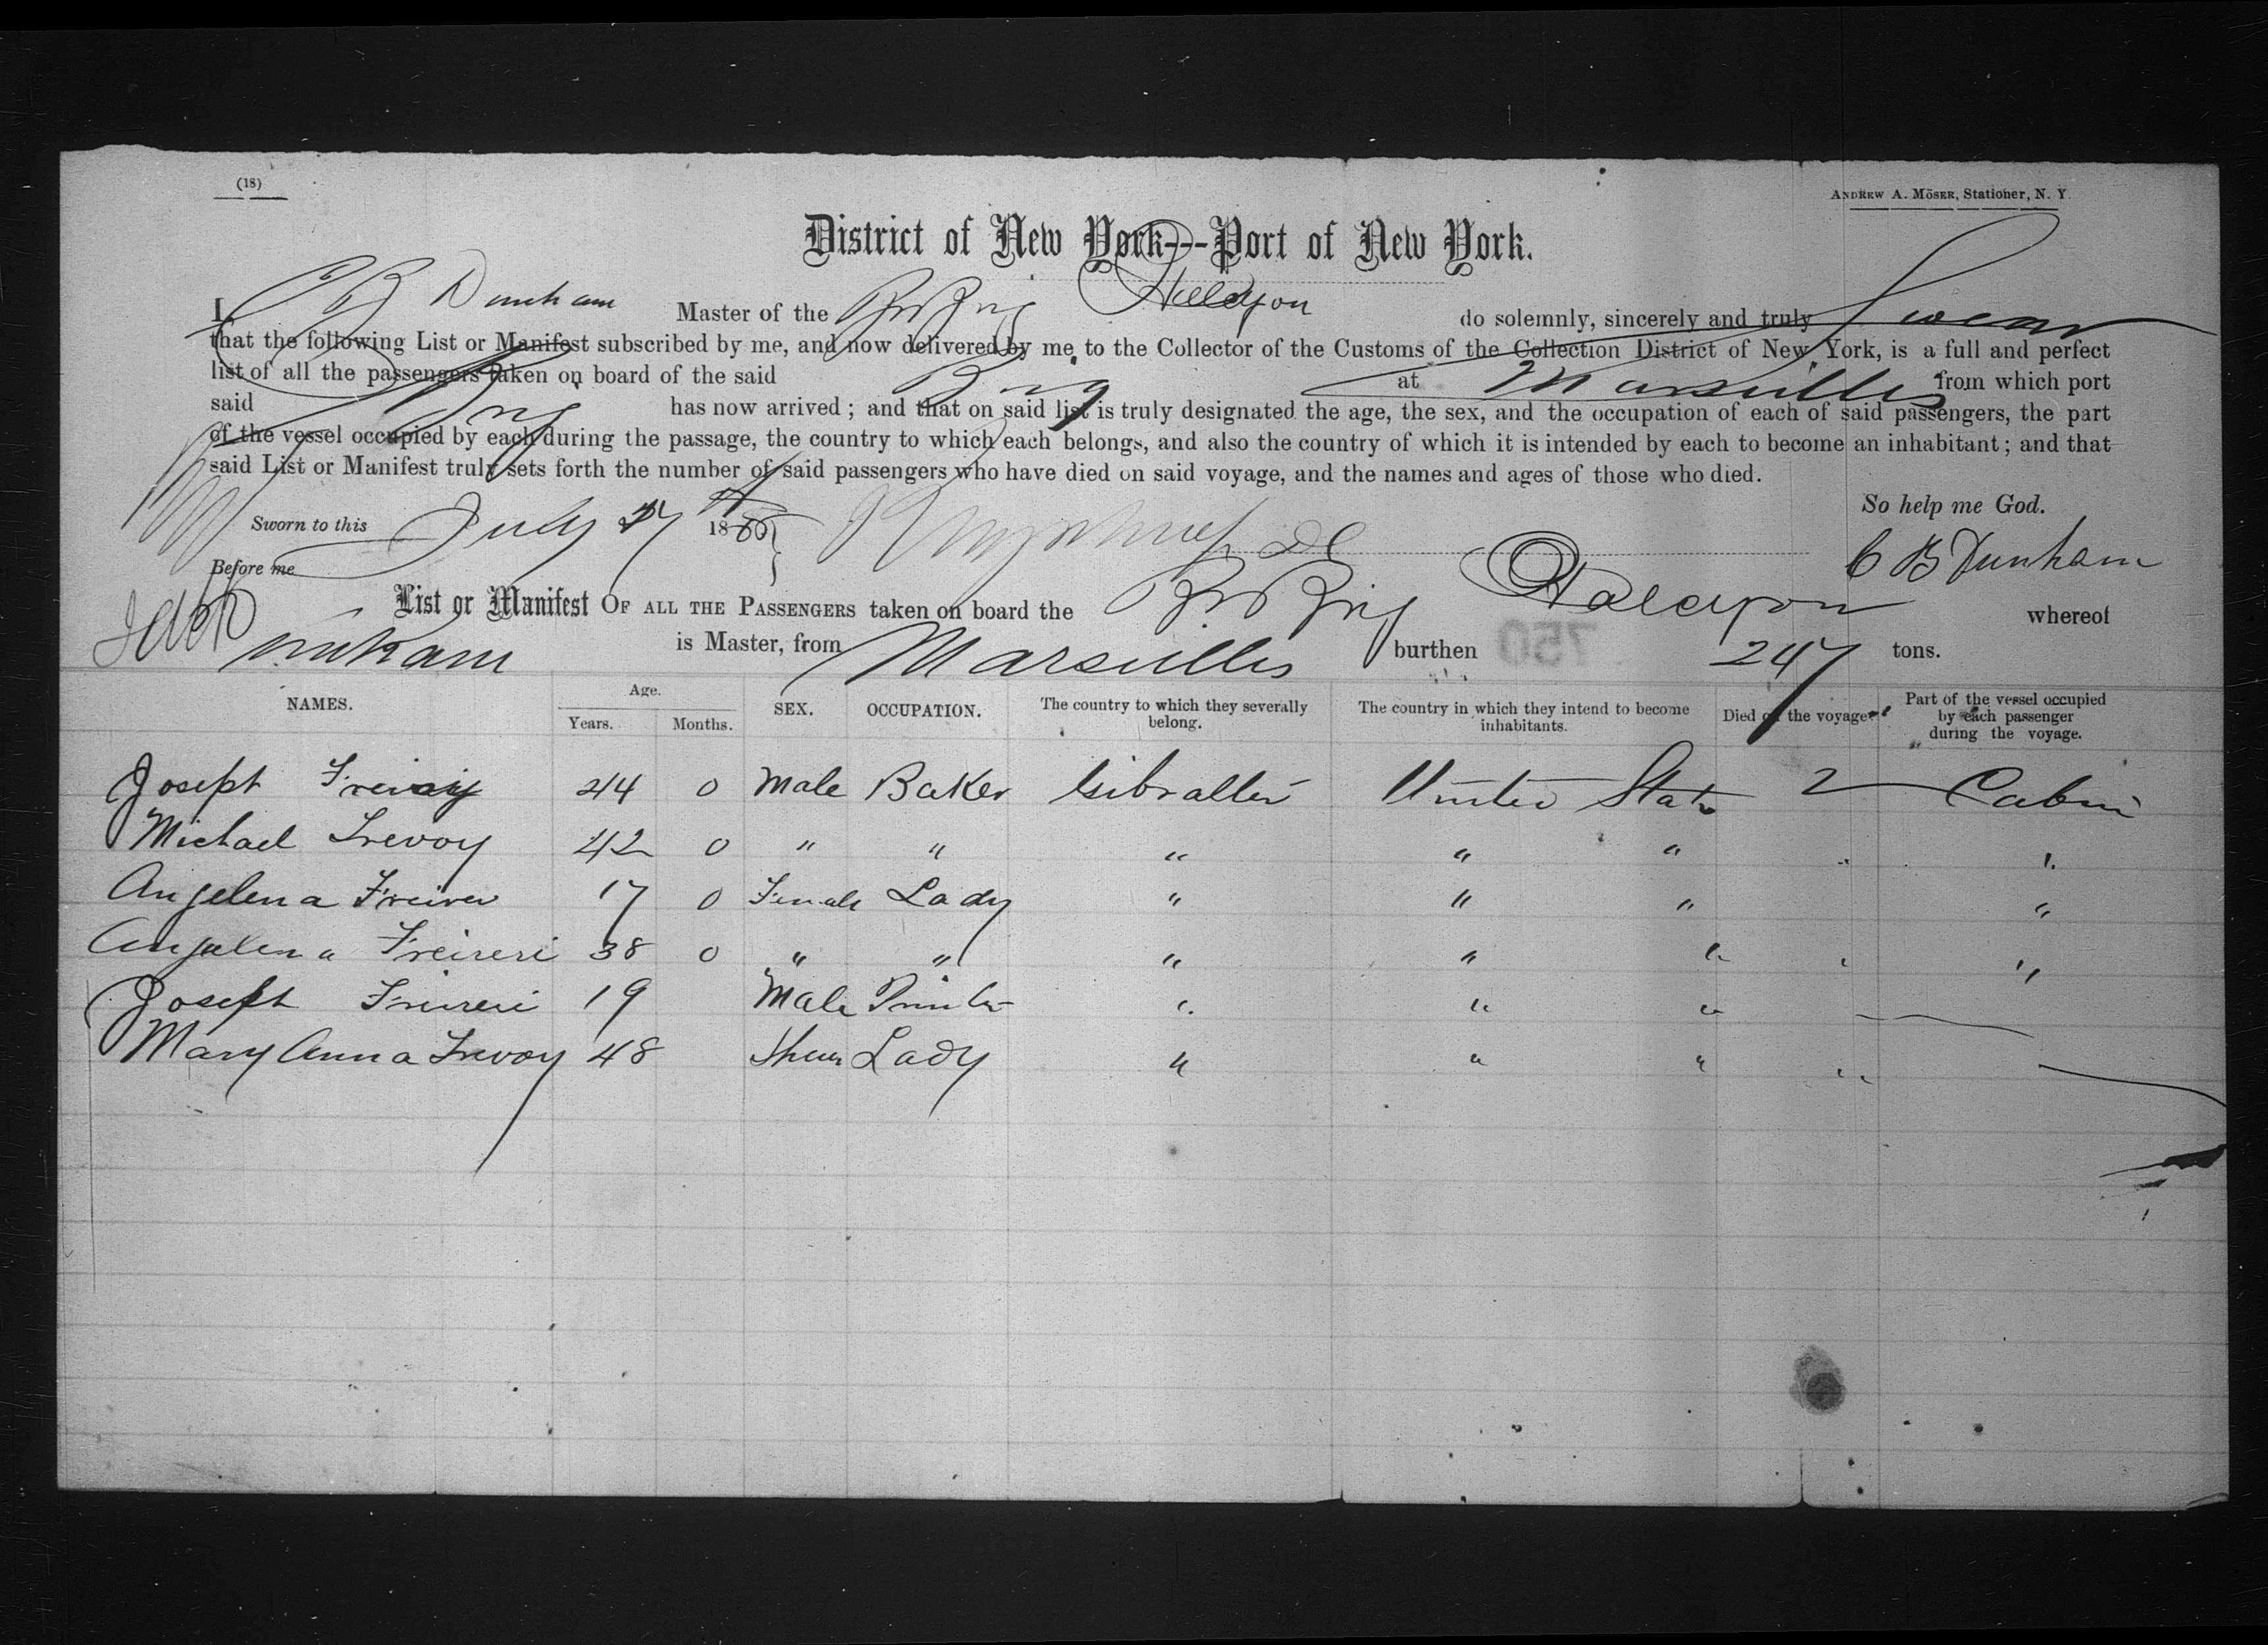 (18)
ANDREW A. MÖSER, Stationer, N. Y.
District of New York---Port of New York.
I, C B Dunham Master of the Br Brig Halcyon do solemnly, sincerely and truly Swear
that the following List or Manifest subscribed by me, and now delivered by me to the Collector of the Customs of the Collection District of New York, is a full and perfect
list of all the passengers taken on board of the said Brig at Marseilles from which port
said Brig has now arrived ; and that on said list is truly designated the age, the sex, and the occupation of each of said passengers, the part
of the vessel occupied by each during the passage, the country to which each belongs, and also the country of which it is intended by each to become an inhabitant ; and that
said List or Manifest truly sets forth the number of said passengers who have died on said voyage, and the names and ages of those who died.
So help me God.
Sworn to this July 27 18
C B Dunham
Before me
List or Manifest OF ALL THE PASSENGERS taken on board the Br Brig Halcyon whereof
is Master, from Marseilles burthen 247 tons.
750
NAMES. Age. Years. Months. SEX. OCCUPATION. The country to which they severally belong. The country in which they intend to become inhabitants. Died on the voyage. Part of the vessel occupied by each passenger during the voyage.
Joseph 44 0 Male Baker Gibralter United States Cabin
Michael Trevoy 42 0 " " " " " "
Angelena 17 0 Female Lady " " " "
Angelena Freireri 38 0 " " " " " "
Joseph Freireri 19 Male Printer " " "
Mary Anna Trevoy 48 Lady " " "